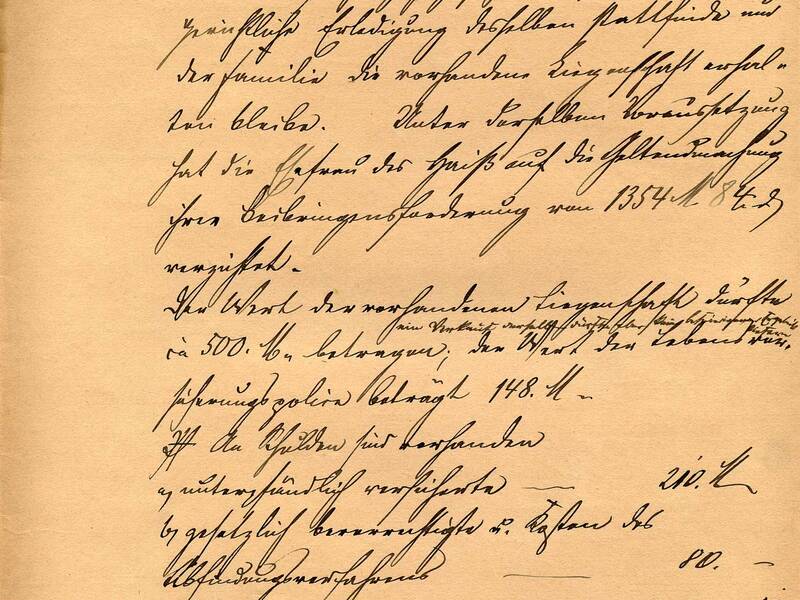 gerichtliche Erledigung desselben stattfinde und
der Familie die vorhandene Liegenschaft erhal-
ten bleibe. Unter derselben Voraussetzung
hat die Ehefrau des Haiß auf die Geltendmachung
ihrer Beibringensforderung von 1354 M 84 d
verzichtet.
Der Wert der vorhandenen Liegenschaft dürfte
ein Verkauf derselben dürfte aber kein
ca 500. M. betragen; der Wert der Lebensver-
sicherungspolice beträgt 148. M.
An Schulden sind vorhanden
a) unterpfändlich versicherte — 210. M
b) gesetzlich bevorrechtigte u. Kosten des
Abfindungsverfahrens — 80. —